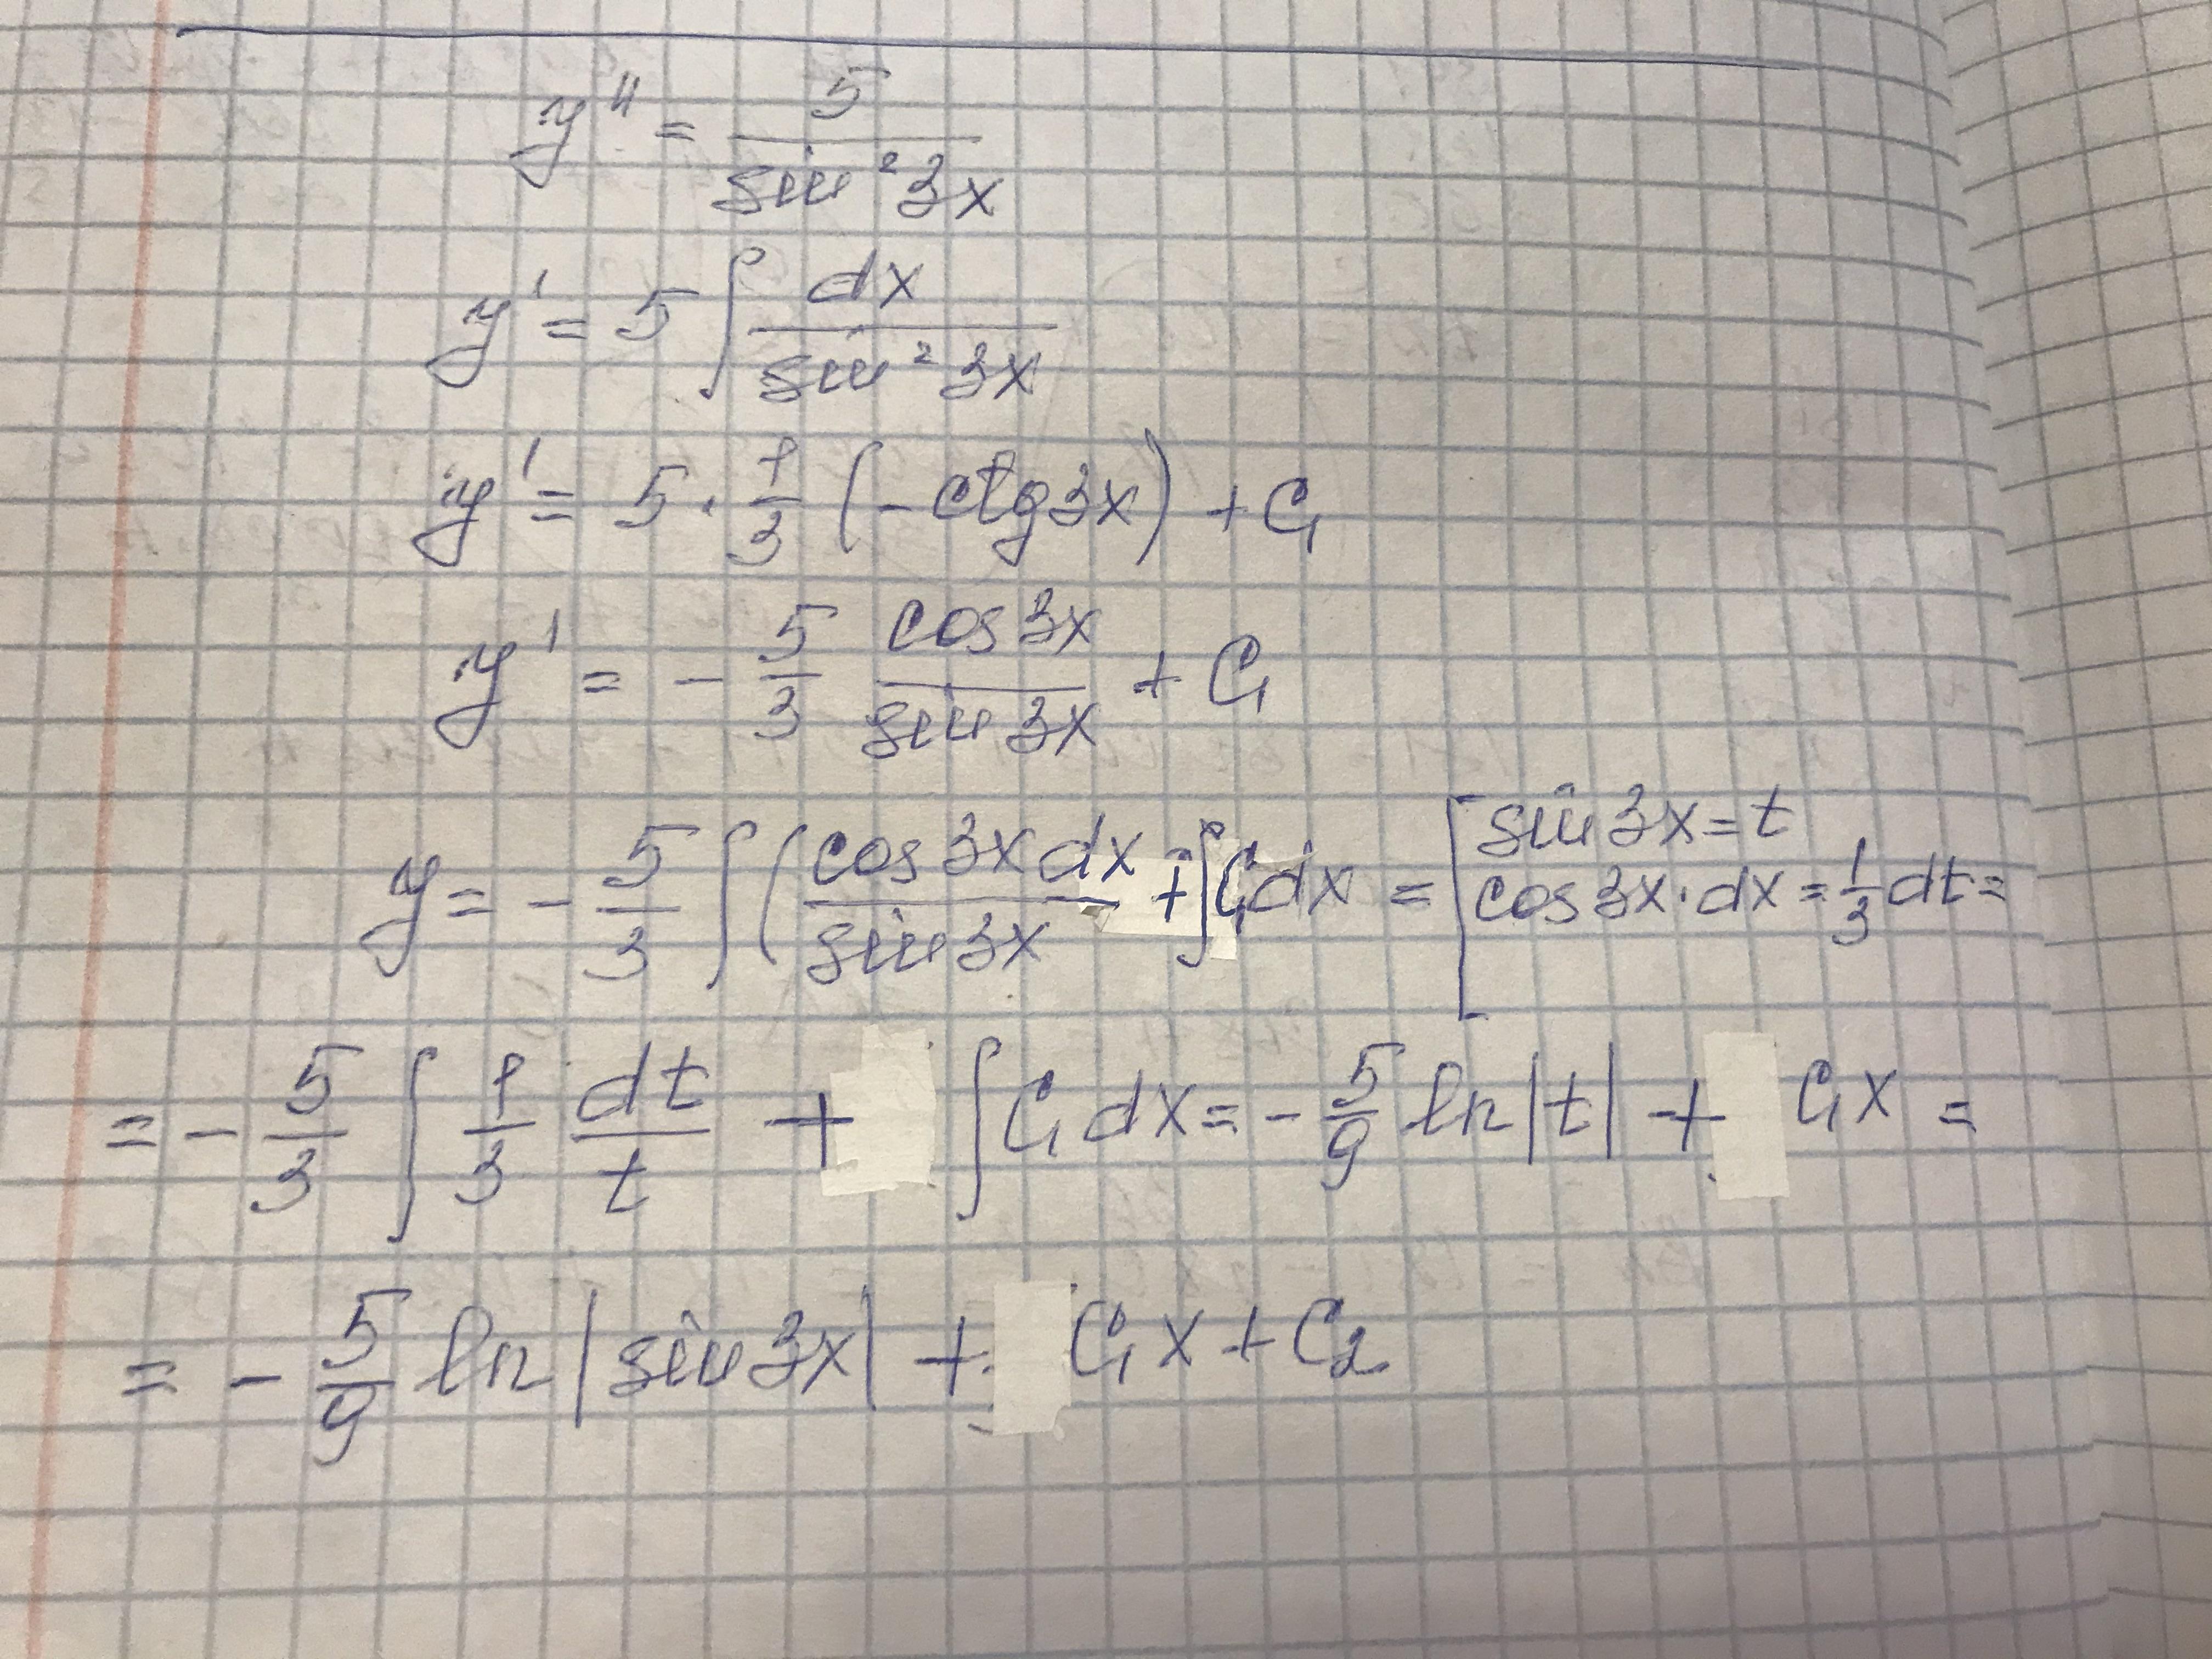 y'' = 5 / sin² 3x
y' = 5 ∫ dx / sin² 3x
y' = 5 · 1/3 (- ctg 3x) + C₁
y' = - 5/3 cos 3x / sin 3x + C₁
y = - 5/3 ∫ ( cos 3x dx / sin 3x + ∫ C₁ dx = [ sin 3x = t
cos 3x · dx = 1/3 dt =
= - 5/3 ∫ 1/3 dt/t + ∫ C₁ dx = - 5/9 ln |t| + C₁ x =
= - 5/9 ln | sin 3x | + C₁ x + C₂